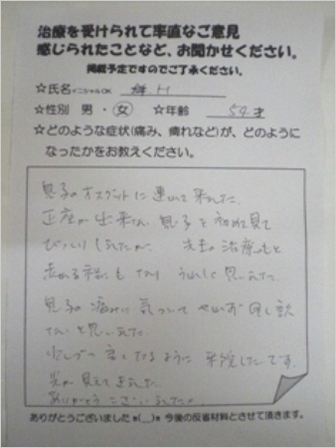 治療を受けられて率直なご意見
感じられたことなど、お聞かせください。
掲載予定ですのでご了承ください。
☆氏名 イニシャルOK H
☆性別 男・女 ☆年齢 54才
☆どのような症状(痛み、痺れなど)が、どのように
なったかをお教えください。
息子のオスグットに連れて来ました
正座が出来ない息子を初めて見て
びっくりしましたが、先生の治療のもと
走れる様にもなり うれしく思いました
息子の痛みに気づいてやれず申し訳
ないと思いました
少しづつ良くなるように 通院したいです
光が見えて来ました
ありがとうございました
ありがとうございましたm(__)m 今後の反省材料とさせて頂きます。